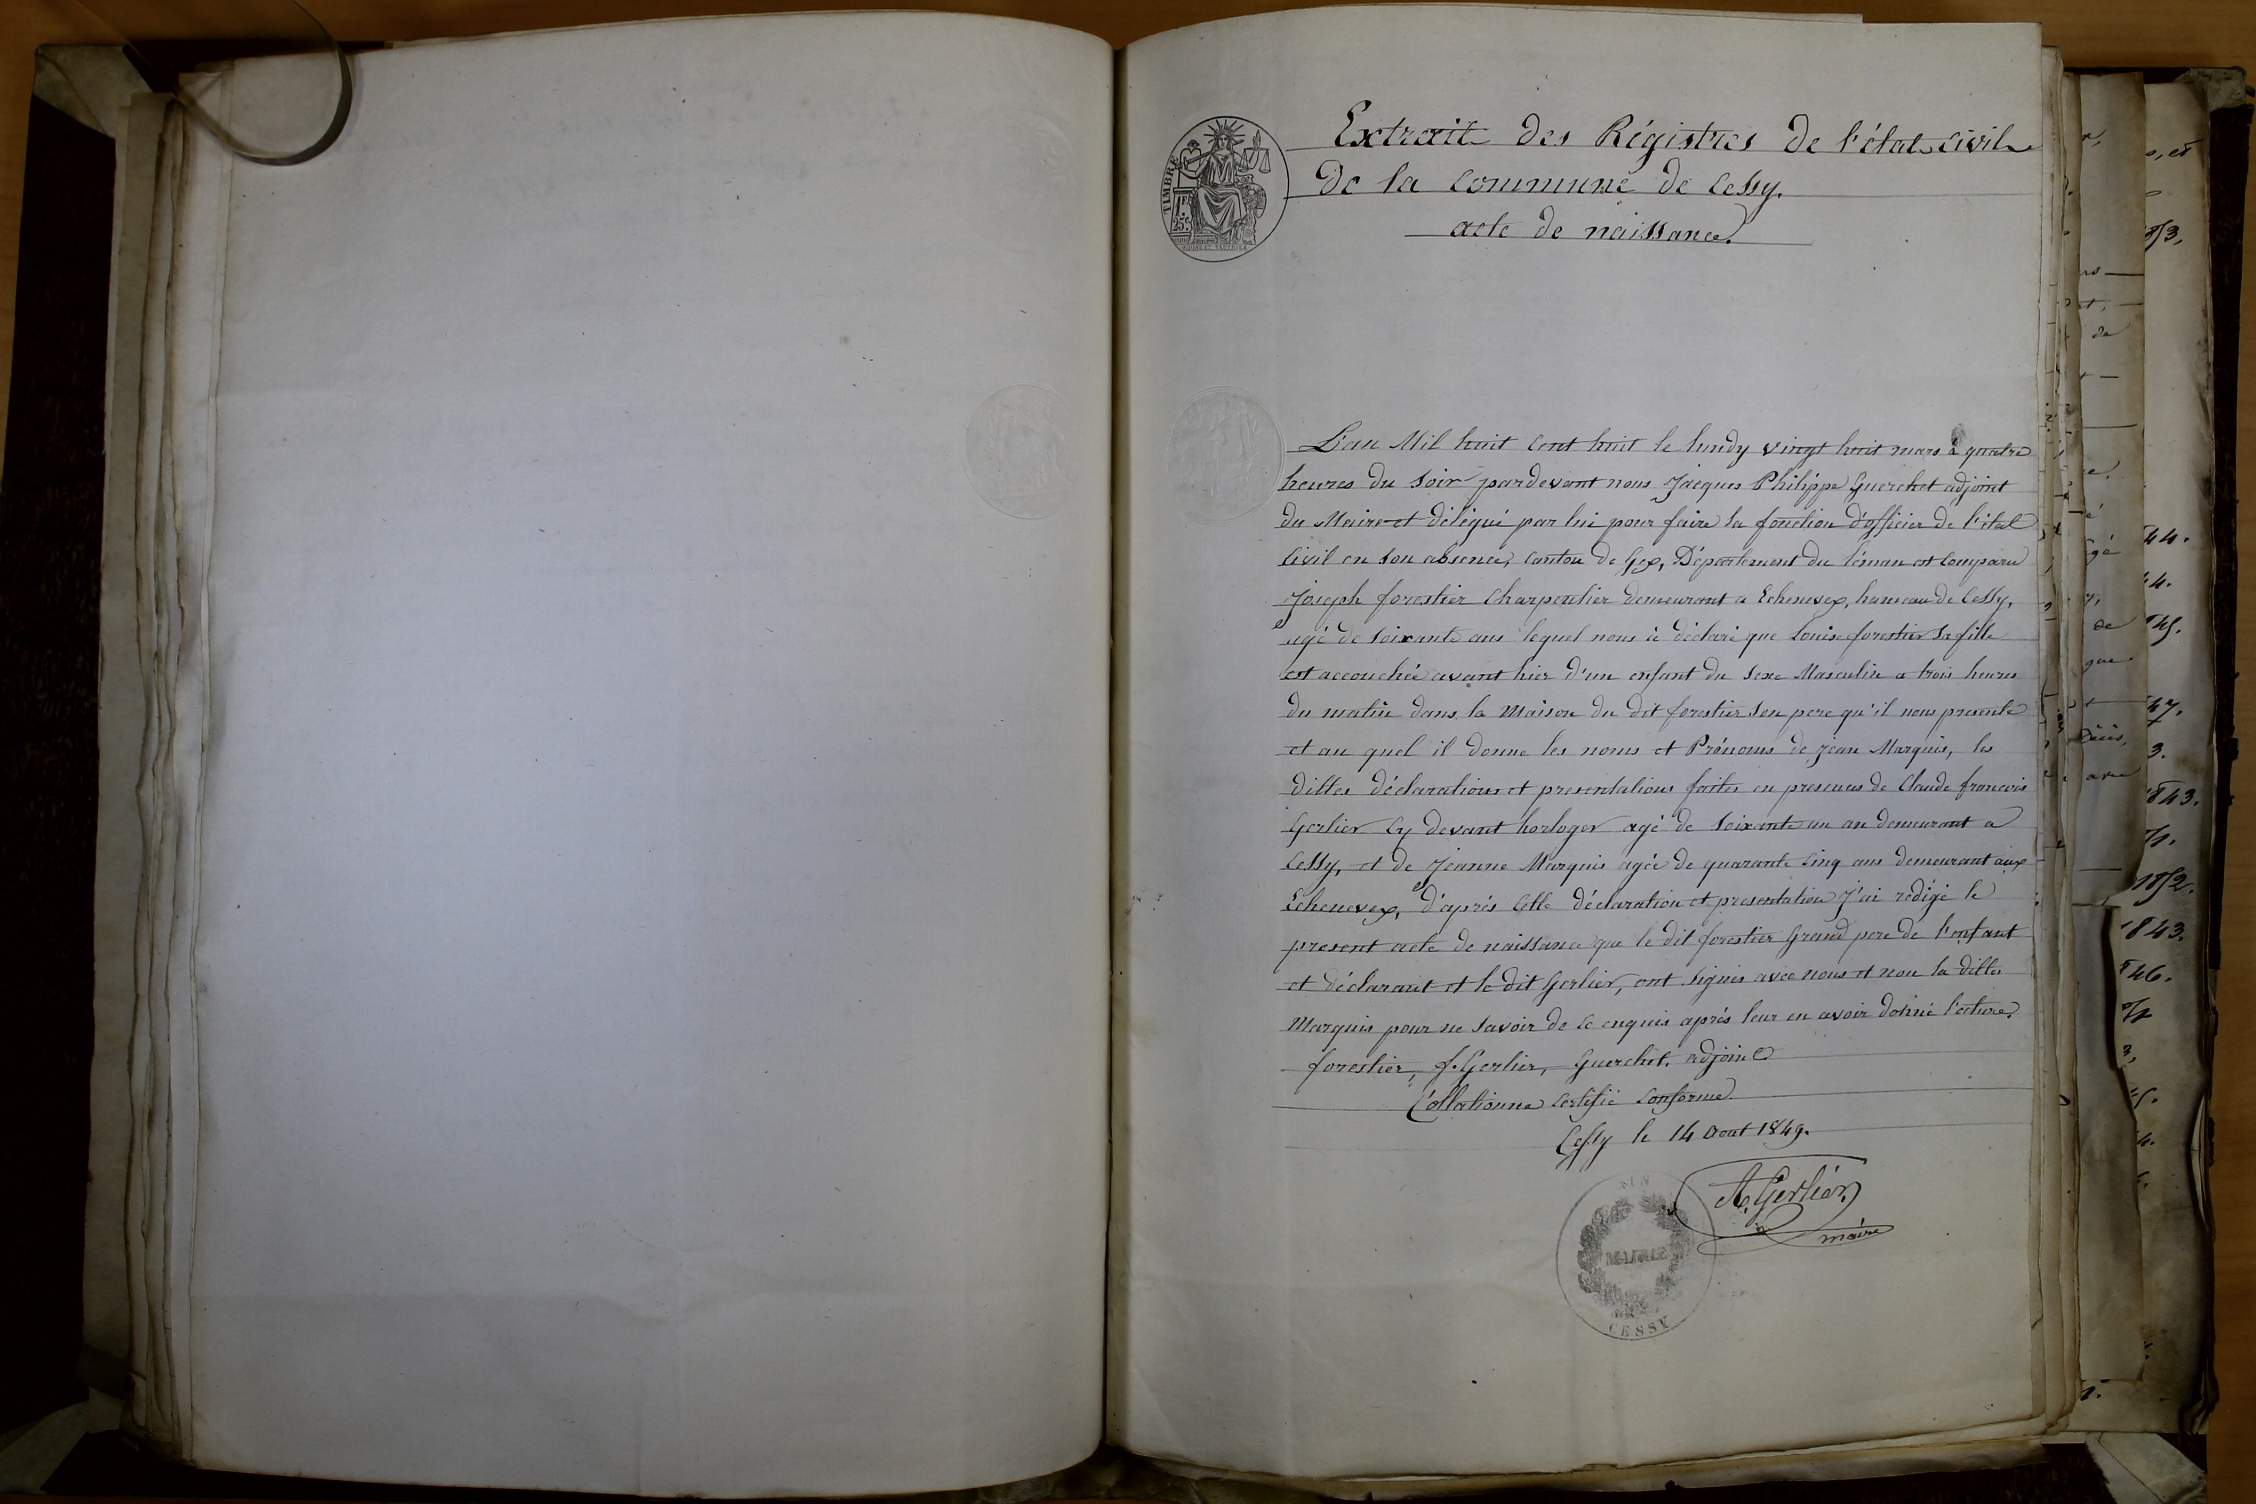 Extrait des Régistres de l'état civil
de la commune de Cessy.
acte de naissance.
TIMBRE
1F.
25c.
L'an Mil huit cent huit le lundy vingt huit mars à quatre
heures du soir pardevant nous Jacques Philippe Guerchet adjoint
du Maire et délégué par lui pour faire la fonction d'officier de l'état
civil en son absence, canton de Gex, Département du Léman est comparu
Joseph forestier Charpentier demeurant a Echenevex, hameau de Cessy,
agé de soixante ans lequel nous à déclaré que Louise forestier sa fille
est accouchée avant hier d'un enfant du sexe Masculin a trois heures
du matin dans la Maison du dit forestier son pere qu'il nous presente
et au quel il donne les noms et Prénoms de Jean Marquis, les
dittes déclarations et presentations faites en presences de Claude francois
Gerlier Cy devant horloger agé de soixante un an demeurant a
Cessy, et de Jeanne Marquis agée de quarante cinq ans demeurant aux
Echenevex, d'après cette déclaration et presentation j'ai rédigé le
present acte de naissance que le dit forestier Grand pere de l'enfant
et déclarant et le dit Gerlier, ont signés avec nous et non la ditte
Marquis pour ne savoir de ce enquis après leur en avoir donné lecture.
forestier, f. Gerlier, Guerchet. adjoint
Collationné certifié conforme
Cessy le 14 Aout 1849.
A. Gerlier
maire
MAIRIE
CESSY